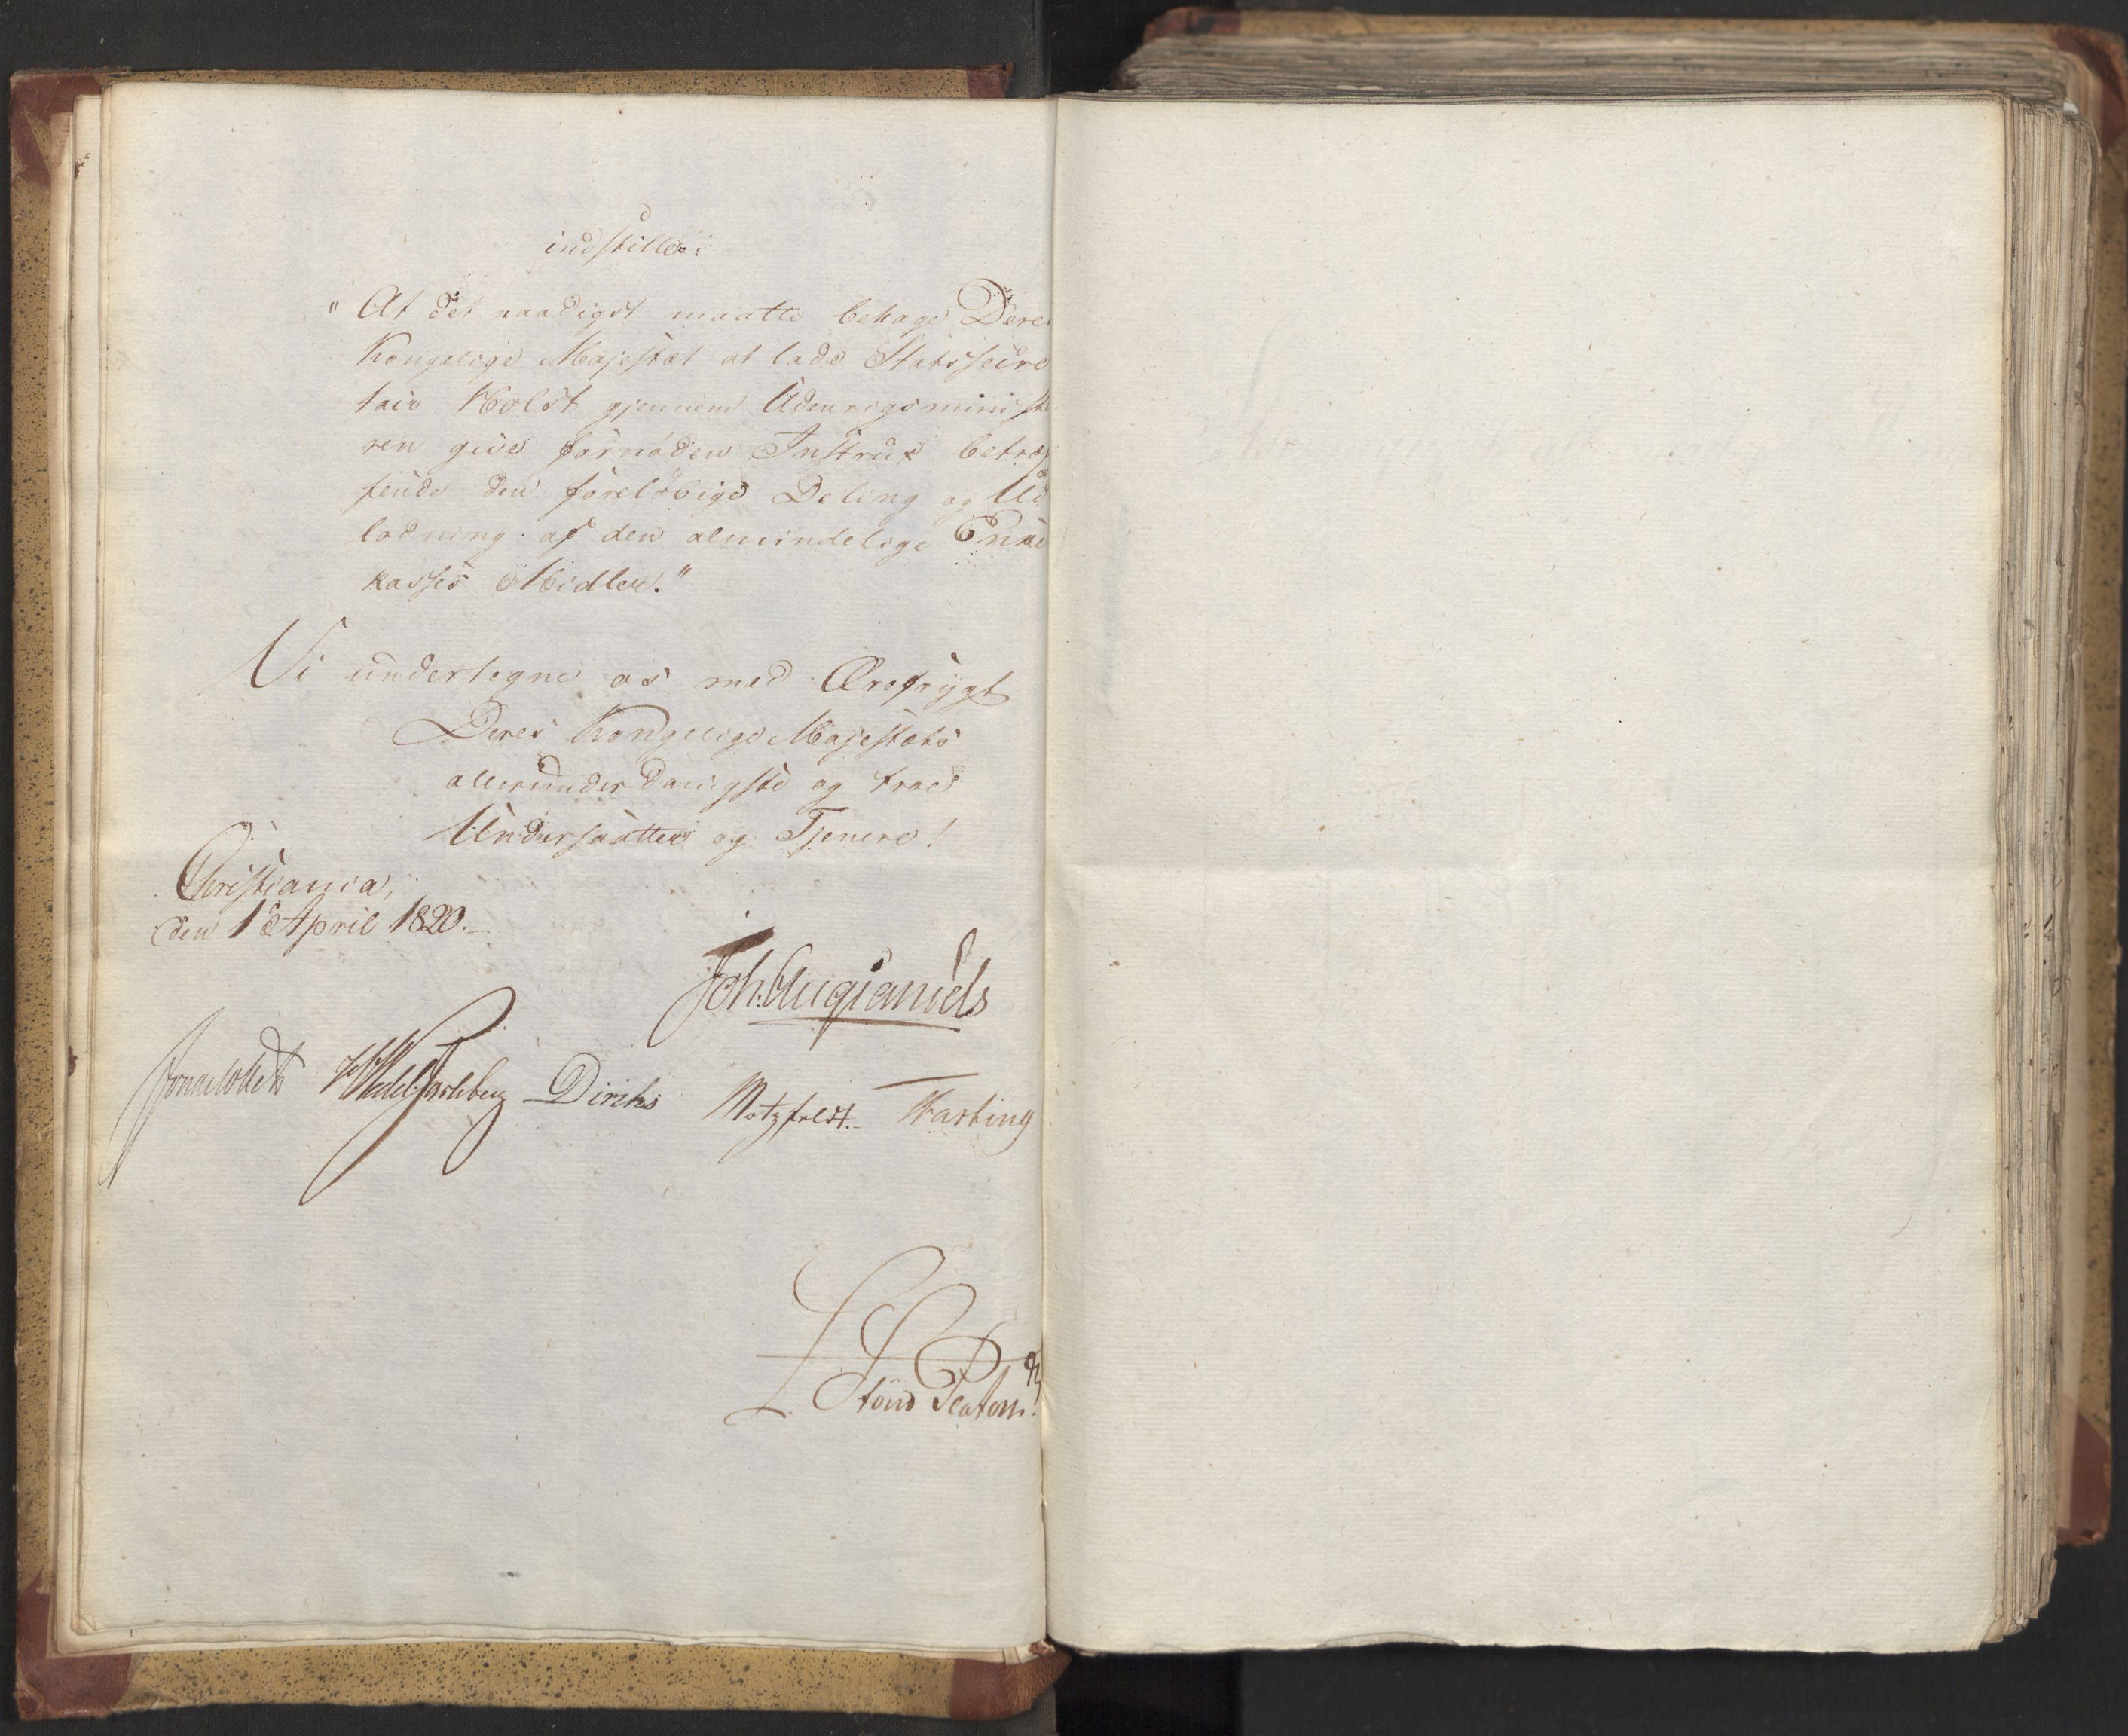 indstille:
"At det naadigst maatte behage Deres
Kongelige Majestæt at lade Statssecre
tair Holst gjennem Udenrigsministe
ren give fornøden Instrux betræf
fende den foreløbige Deling og Ud
lodning af den almindelige Enke
kasses Midler."
Vi undertegne os med Ærefrygt
Deres Kongelige Majestæts
allerunderdanigste og troe
Undersaatter og Tjenere!
Christiania,
den 1ste April 1820.
Joh. Aug. Sandels
Sommerhielm Wedel Jarlsberg Diriks Motzfeldt. Fasting
L. Stoud Platou.